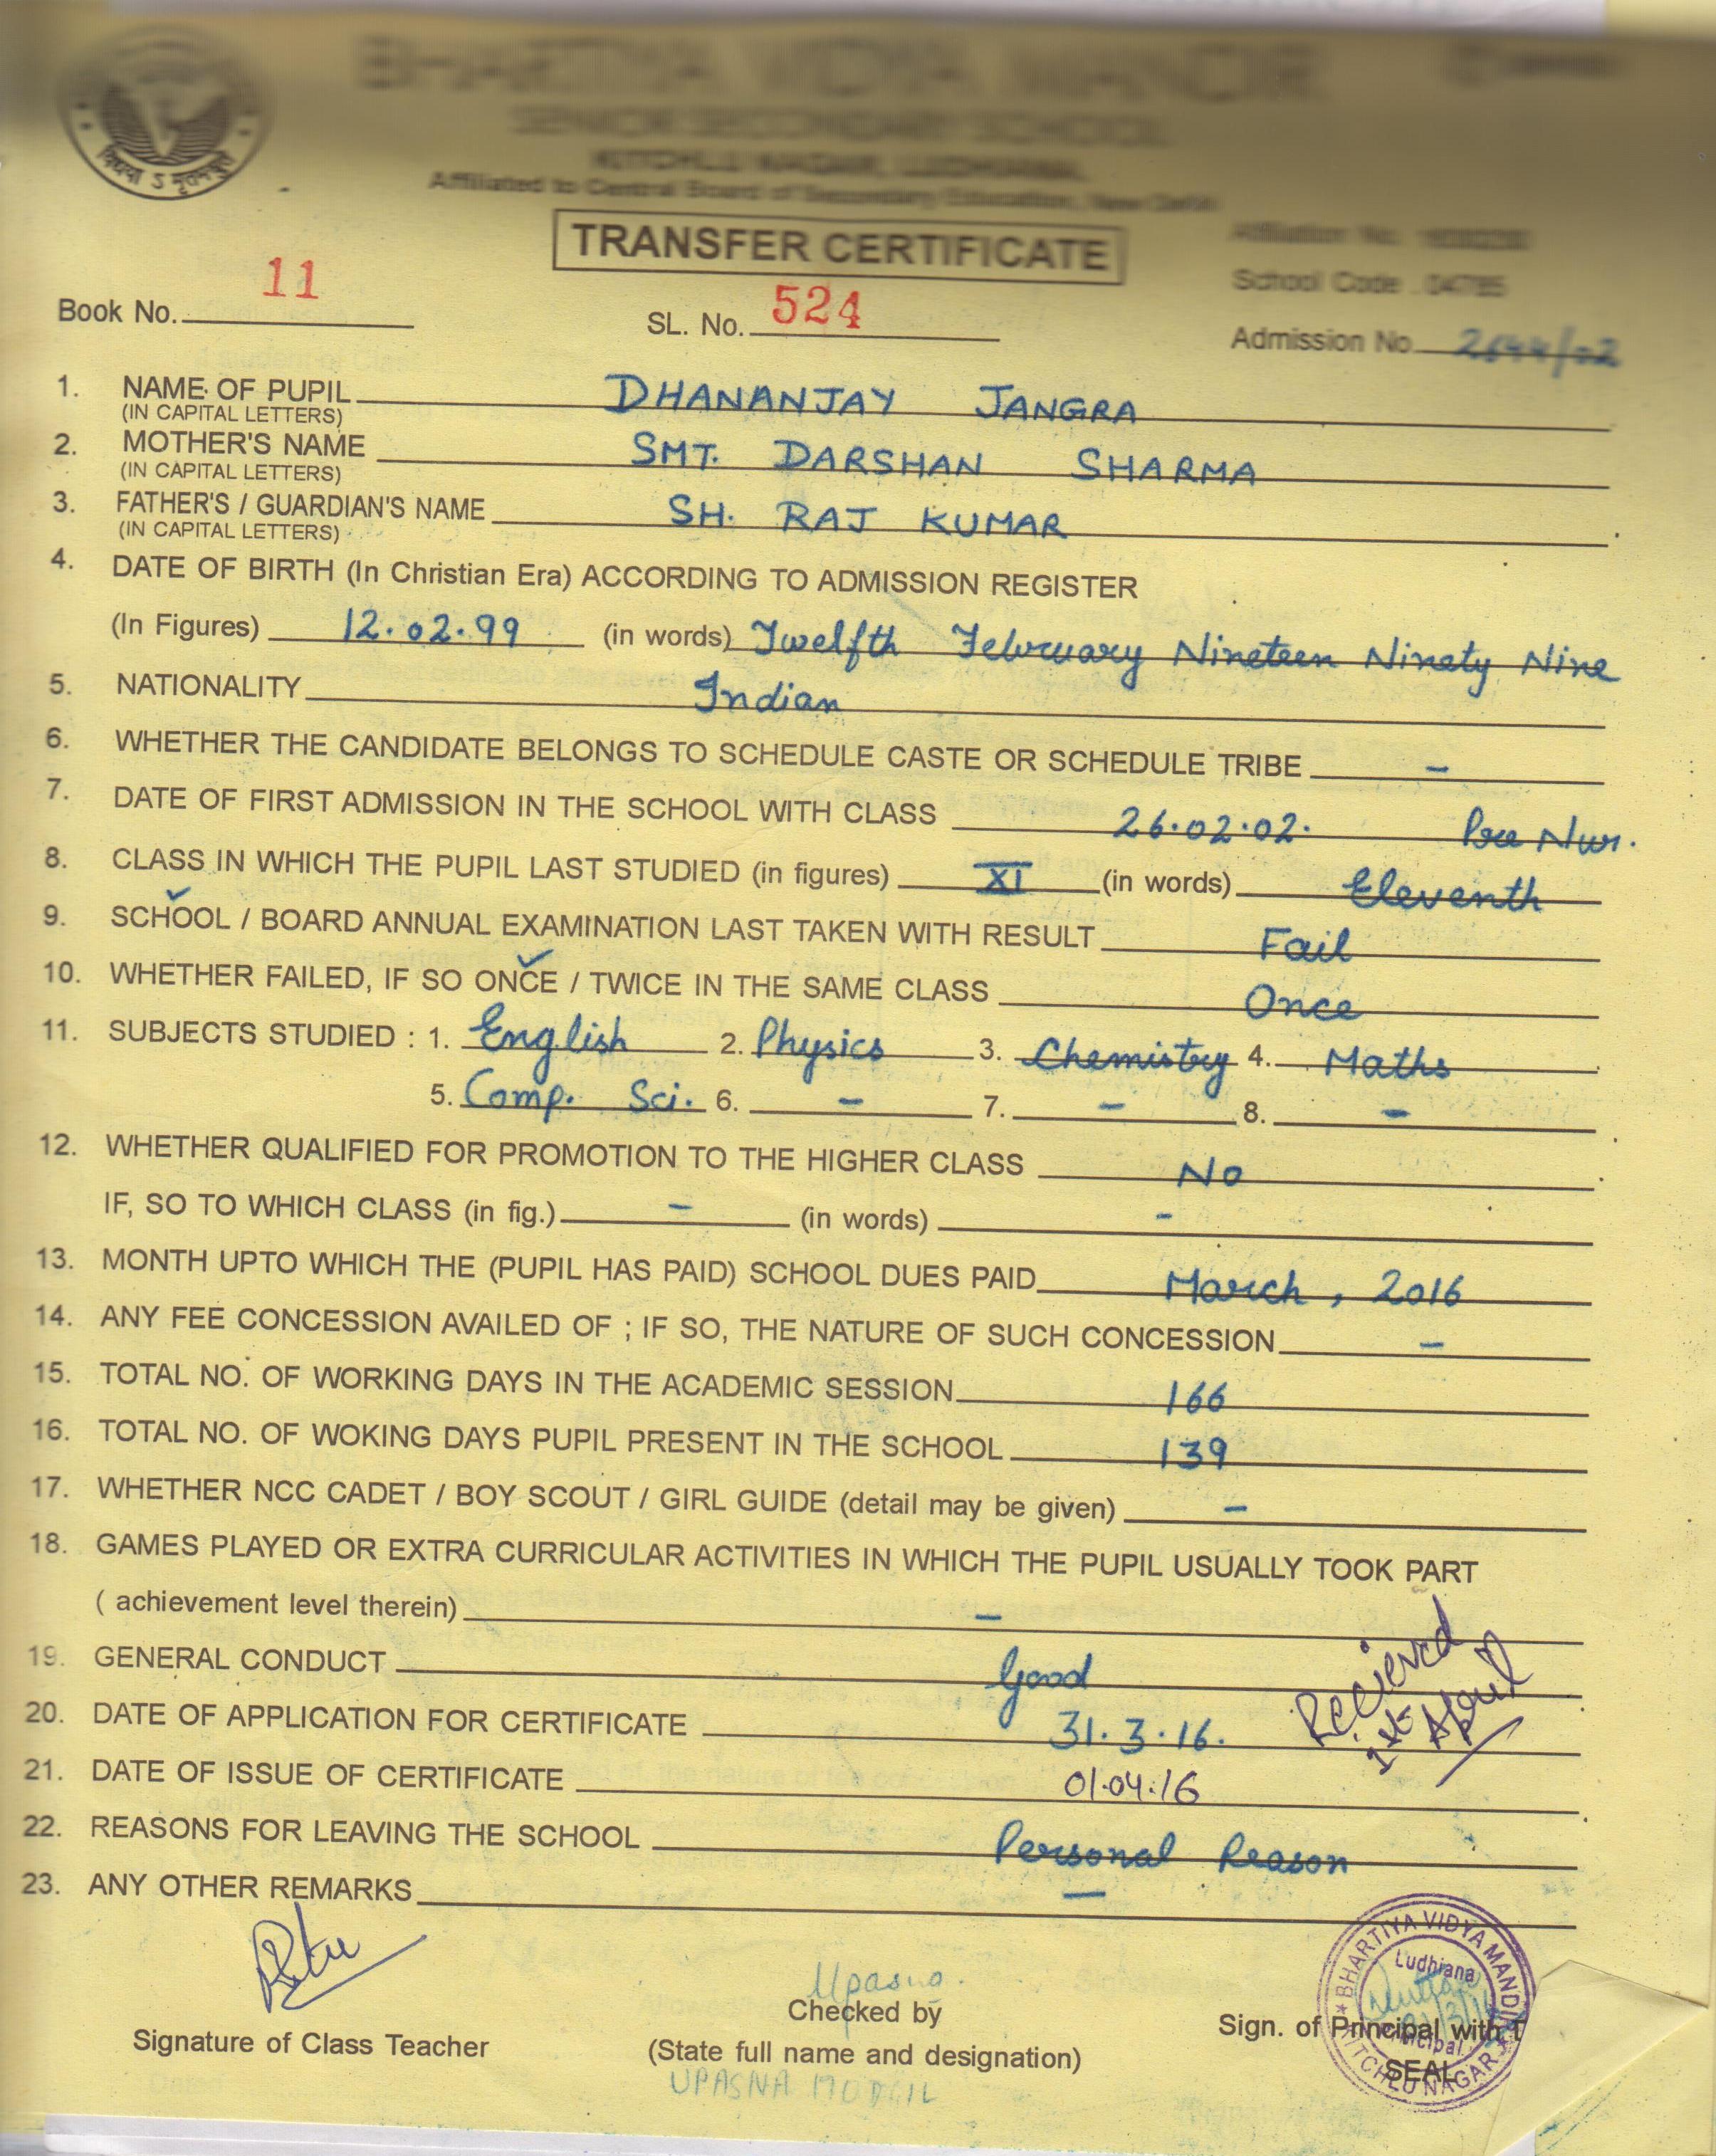 BHARTIYA VIDYA MANDIR
SENIOR SECONDARY SCHOOL
KITCHLU NAGAR, LUDHIANA
Affiliated to Central Board of Secondary Education, New Delhi
TRANSFER CERTIFICATE
Affiliation No.
School Code . 04785
Book No. 11 SL. No. 524 Admission No. 2644/02
1. NAME OF PUPIL DHANANJAY JANGRA
(IN CAPITAL LETTERS)
2. MOTHER'S NAME SMT. DARSHAN SHARMA
(IN CAPITAL LETTERS)
3. FATHER'S / GUARDIAN'S NAME SH. RAJ KUMAR
(IN CAPITAL LETTERS)
4. DATE OF BIRTH (In Christian Era) ACCORDING TO ADMISSION REGISTER
(In Figures) 12.02.99 (in words) Twelfth February Nineteen Ninety Nine
5. NATIONALITY Indian
6. WHETHER THE CANDIDATE BELONGS TO SCHEDULE CASTE OR SCHEDULE TRIBE -
7. DATE OF FIRST ADMISSION IN THE SCHOOL WITH CLASS 26.02.02. Pre Nur.
8. CLASS IN WHICH THE PUPIL LAST STUDIED (in figures) XI (in words) Eleventh
9. SCHOOL / BOARD ANNUAL EXAMINATION LAST TAKEN WITH RESULT Fail
10. WHETHER FAILED, IF SO ONCE / TWICE IN THE SAME CLASS Once
11. SUBJECTS STUDIED : 1. English 2. Physics 3. Chemistry 4. Maths
5. Comp. Sci. 6. - 7. - 8. -
12. WHETHER QUALIFIED FOR PROMOTION TO THE HIGHER CLASS No
IF, SO TO WHICH CLASS (in fig.) - (in words) -
13. MONTH UPTO WHICH THE (PUPIL HAS PAID) SCHOOL DUES PAID March, 2016
14. ANY FEE CONCESSION AVAILED OF ; IF SO, THE NATURE OF SUCH CONCESSION -
15. TOTAL NO. OF WORKING DAYS IN THE ACADEMIC SESSION 166
16. TOTAL NO. OF WOKING DAYS PUPIL PRESENT IN THE SCHOOL 139
17. WHETHER NCC CADET / BOY SCOUT / GIRL GUIDE (detail may be given) -
18. GAMES PLAYED OR EXTRA CURRICULAR ACTIVITIES IN WHICH THE PUPIL USUALLY TOOK PART
( achievement level therein) -
19. GENERAL CONDUCT Good
Recieved
1st April
20. DATE OF APPLICATION FOR CERTIFICATE 31.3.16.
21. DATE OF ISSUE OF CERTIFICATE 01.04.16
22. REASONS FOR LEAVING THE SCHOOL Personal Reason
23. ANY OTHER REMARKS -
Upasna.
Signature of Class Teacher
Checked by
(State full name and designation)
UPASNA MODGIL
Sign. of Principal with
SEAL
BHARTIYA VIDYA MANDIR
KITCHLU NAGAR
Ludhiana
Principal